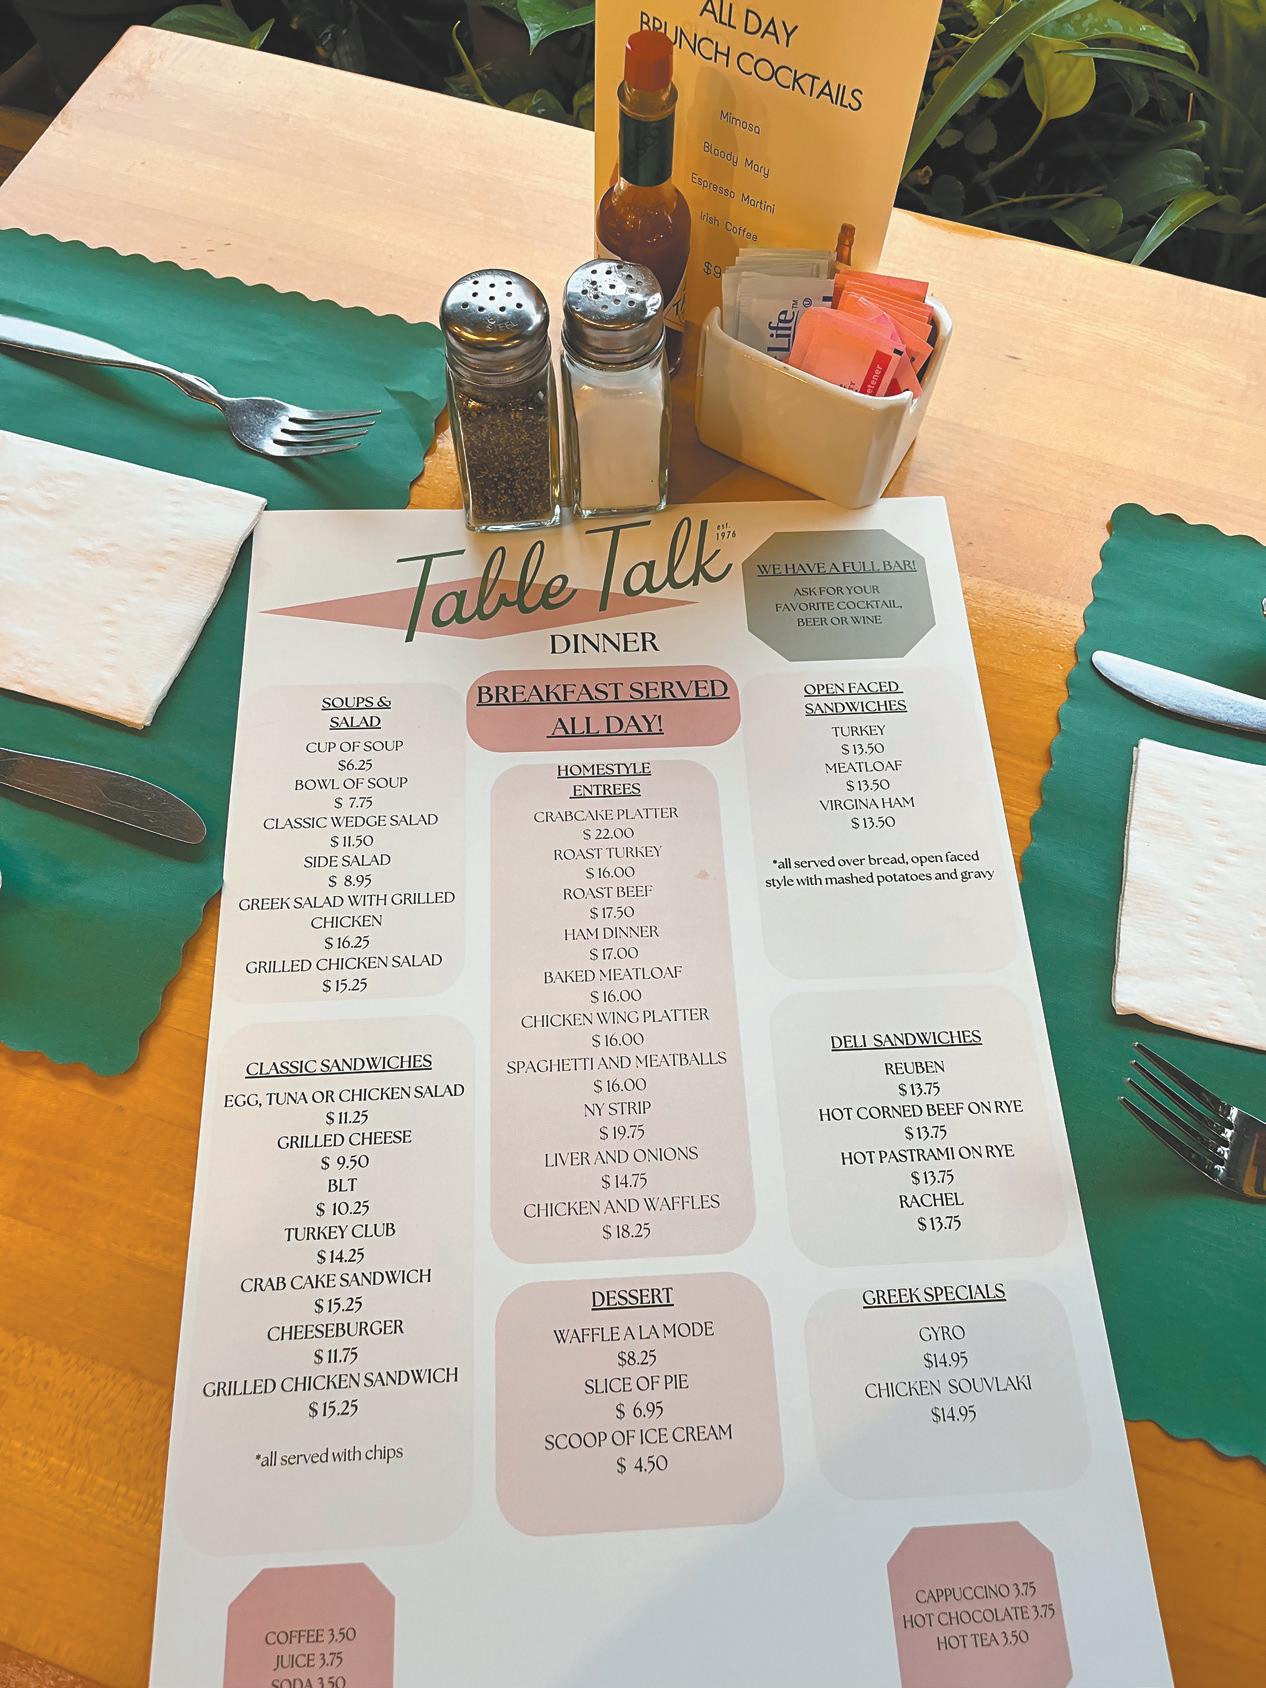 ALL DAY
BRUNCH COCKTAILS
Mimosa
Bloody Mary
Espresso Martini
Irish Coffee
$9
Life™
STEEL
Table Talk
est.
1976
DINNER
WE HAVE A FULL BAR!
ASK FOR YOUR
FAVORITE COCKTAIL,
BEER OR WINE
BREAKFAST SERVED
ALL DAY!
SOUPS &
SALAD
CUP OF SOUP
$6.25
BOWL OF SOUP
$ 7.75
CLASSIC WEDGE SALAD
$ 11.50
SIDE SALAD
$ 8.95
GREEK SALAD WITH GRILLED
CHICKEN
$ 16.25
GRILLED CHICKEN SALAD
$ 15.25
CLASSIC SANDWICHES
EGG, TUNA OR CHICKEN SALAD
$ 11.25
GRILLED CHEESE
$ 9.50
BLT
$ 10.25
TURKEY CLUB
$ 14.25
CRAB CAKE SANDWICH
$ 15.25
CHEESEBURGER
$ 11.75
GRILLED CHICKEN SANDWICH
$ 15.25
*all served with chips
HOMESTYLE
ENTREES
CRABCAKE PLATTER
$ 22.00
ROAST TURKEY
$ 16.00
ROAST BEEF
$ 17.50
HAM DINNER
$ 17.00
BAKED MEATLOAF
$ 16.00
CHICKEN WING PLATTER
$ 16.00
SPAGHETTI AND MEATBALLS
$ 16.00
NY STRIP
$ 19.75
LIVER AND ONIONS
$ 14.75
CHICKEN AND WAFFLES
$ 18.25
DESSERT
WAFFLE A LA MODE
$8.25
SLICE OF PIE
$ 6.95
SCOOP OF ICE CREAM
$ 4.50
OPEN FACED
SANDWICHES
TURKEY
$ 13.50
MEATLOAF
$ 13.50
VIRGINA HAM
$ 13.50
*all served over bread, open faced
style with mashed potatoes and gravy
DELI SANDWICHES
REUBEN
$ 13.75
HOT CORNED BEEF ON RYE
$ 13.75
HOT PASTRAMI ON RYE
$ 13.75
RACHEL
$ 13.75
GREEK SPECIALS
GYRO
$14.95
CHICKEN SOUVLAKI
$14.95
COFFEE 3.50
JUICE 3.75
SODA 3.50
CAPPUCCINO 3.75
HOT CHOCOLATE 3.75
HOT TEA 3.50